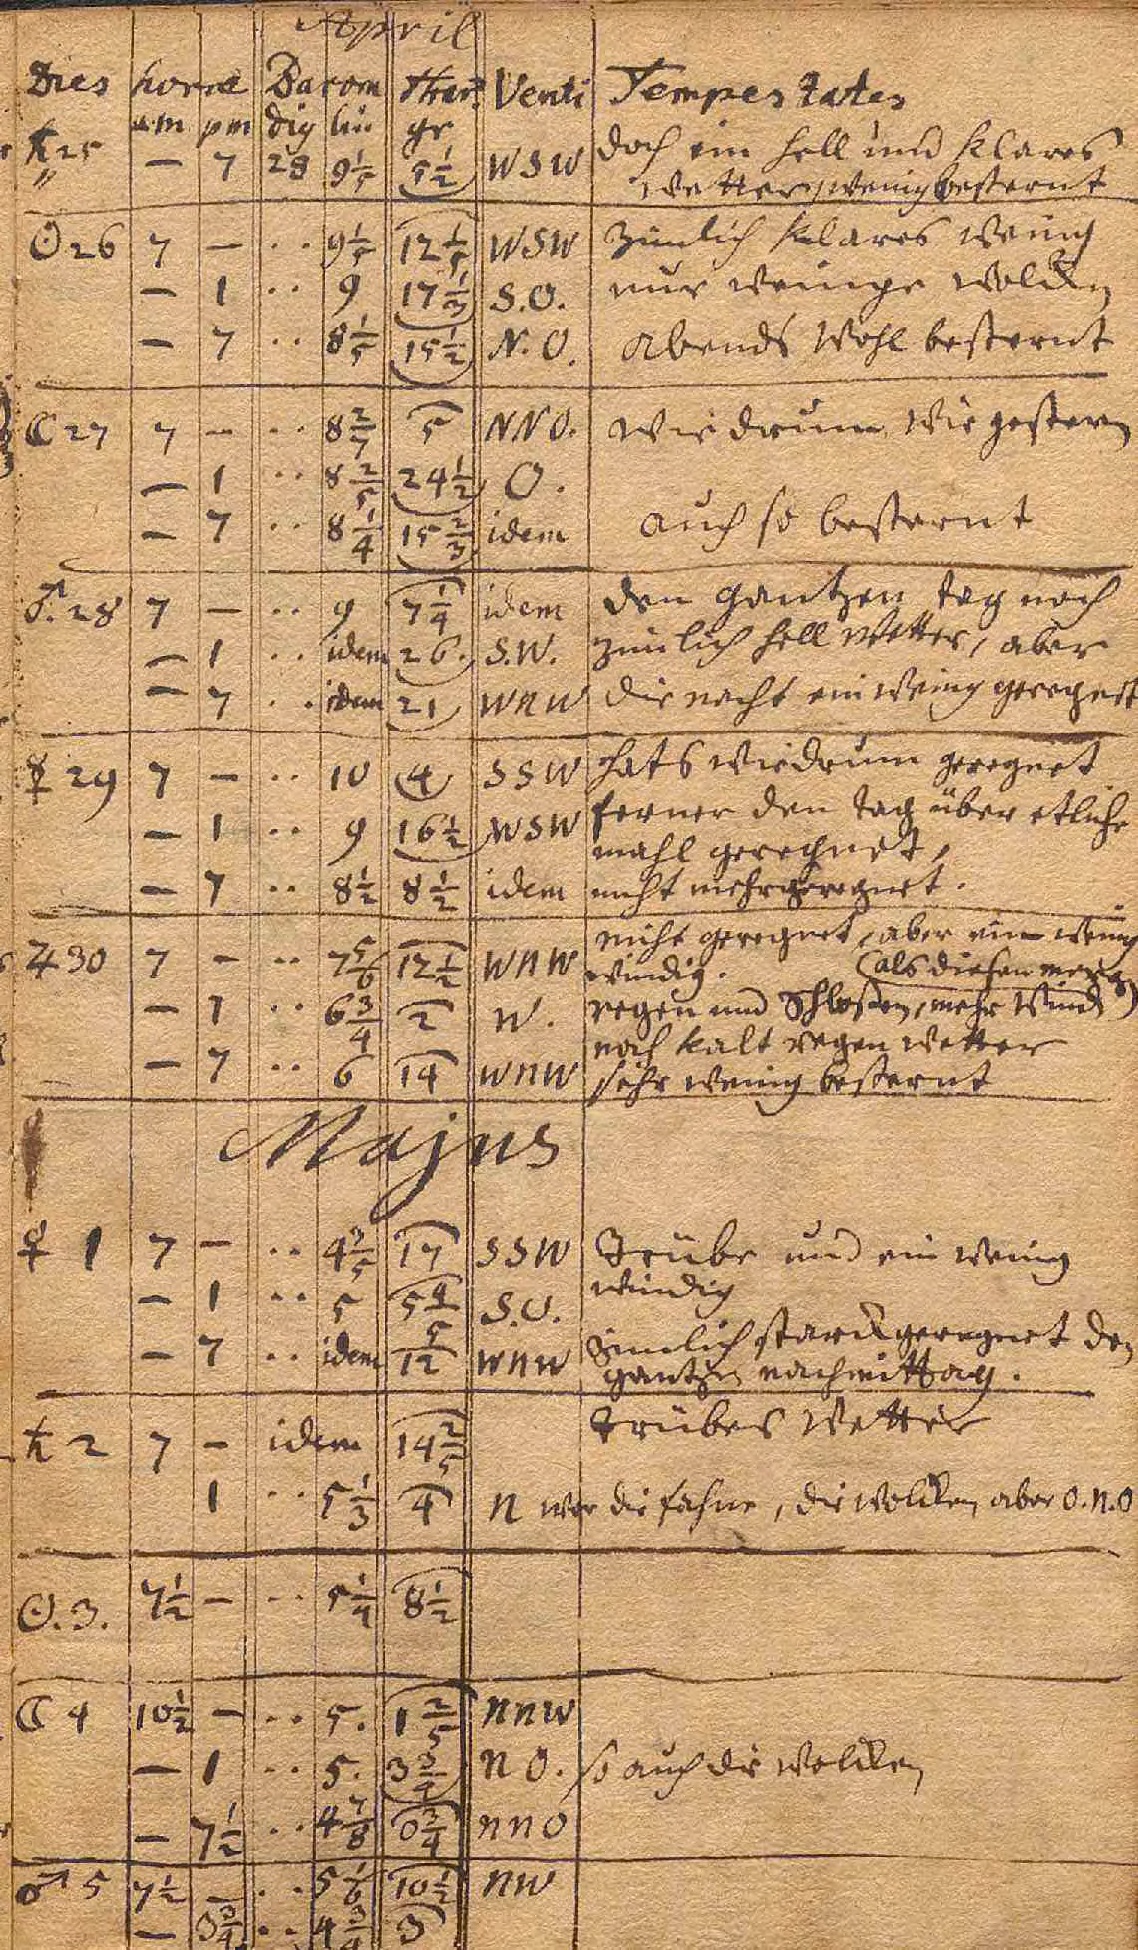 April
Dies horæ Barom ther. Venti Tempestates
am pm dig lin gr
♄ 25 — 7 28 9 1/5 9 1/2 WSW doch ein hell und klares
" wetter, wenig besternt
☉ 26 7 — .. 9 1/5 12 1/5 WSW zimlich klares wenig
— 1 .. 9 17 1/3 S.O. nur weinige wolcken
— 7 .. 8 1/5 15 1/2 N.O. abends wohl besternt
☾ 27 7 — .. 8 2/7 5 NNO. Wiedrum wie gestern
— 1 .. 8 2/5 24 1/2 O.
— 7 .. 8 1/4 15 2/3 idem auch so besternt
♂. 28 7 — .. 9 7 1/4 idem den gantzen tag noch
— 1 .. idem 26. S.W. zimlich hell wetter, aber
— 7 .. idem 21 WNW die nacht ein wenig geregnet
☿ 29 7 — .. 10 4 SSW hats wiedrum geregnet
— 1 .. 9 16 1/2 WSW ferner den tag über etliche
mahl geregnet,
— 7 .. 8 1/2 8 1/2 idem nicht mehr geregnet.
♃ 30 7 — .. 7 5/6 12 1/2 WNW nicht geregnet, aber ein wenig
windig. (als diesen morg)
— 1 .. 6 3/4 2 W. regen und Schlossen, mehr wind
noch kalt regen wetter
— 7 .. 6 14 WNW sehr wenig besternt
Majus
♀ 1 7 — .. 4 3/5 17 SSW Trübe und ein wenig
— 1 .. 5 5 4/5 S.O. windig
— 7 .. idem 12 WNW Zimlich starck geregnet den
gantzen nachmittag.
♄ 2 7 — idem 14 2/5 trübes wetter
1 .. 5 1/3 4 N war die fahne, die wolcken aber O.N.O
☉. 3. 7 1/2 — .. 5 1/4 8 1/2
☾ 4 10 1/2 — .. 5. 1 2/5 NNW
— 1 .. 5. 3 3/4 NO. so auch die wolcken
— 7 1/2 .. 4 7/8 0 3/4 NNO
♂ 5 7 1/2 — .. 5 1/6 10 1/2 NW
— 3 3/4 .. 4 3/4 3